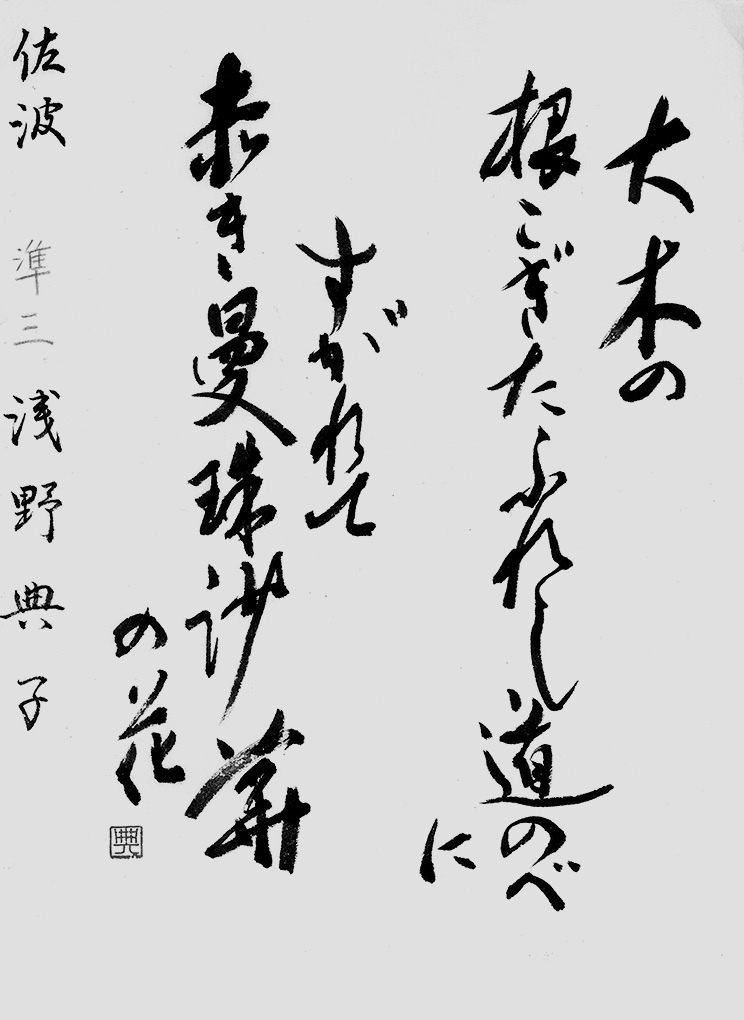 大木の
根こぎたふれし道のべ
に
すがれて
赤き曼珠沙華
の花
典
佐波 準三 浅野典子